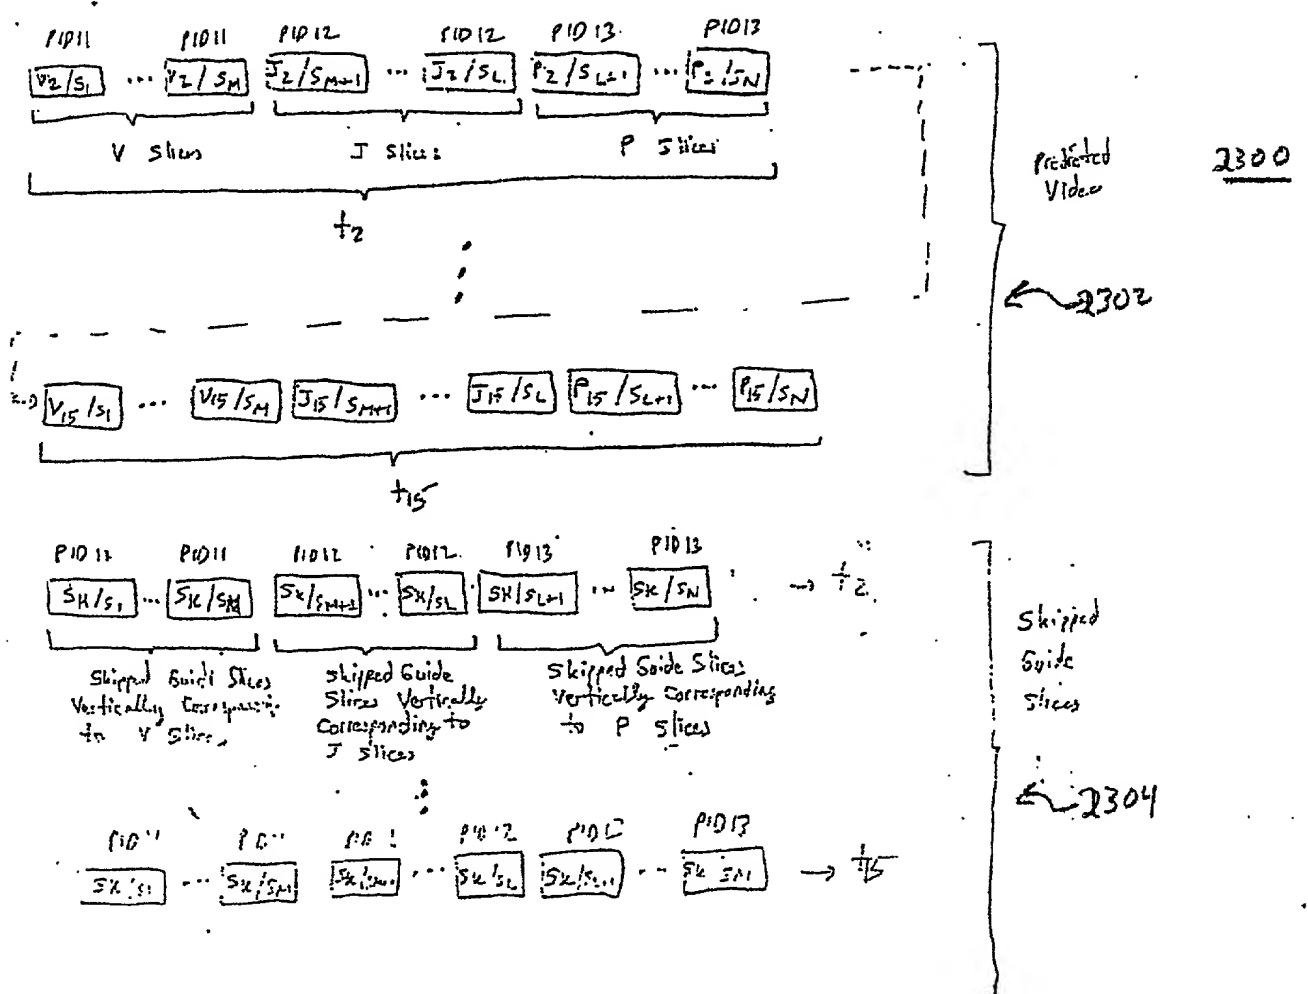 PID11 PID11 PID12 PID12 PID13 PID13
V2/S1 ... V2/SM J2/SM+1 ... J2/SL P2/SL+1 ... P2/SN
V Slices J Slices P Slices
t2
Predicted
Video
2300
2302
V15/S1 ... V15/SM J15/SM+1 ... J15/SL P15/SL+1 ... P15/SN
t15
PID11 PID11 PID12 PID12 PID13 PID13
SK/S1 ... SK/SM SK/SM+1 ... SK/SL SK/SL+1 ... SK/SN → t2
Skipped Guide Slices
Vertically Corresponding
to V Slices
Skipped Guide
Slices Vertically
Corresponding to
J Slices
Skipped Guide Slices
Vertically Corresponding
to P Slices
Skipped
Guide
Slices
2304
PID12 PID13
SK/S1 ... SK/SM ... SK/SL SK/SL+1 ... SK → t15